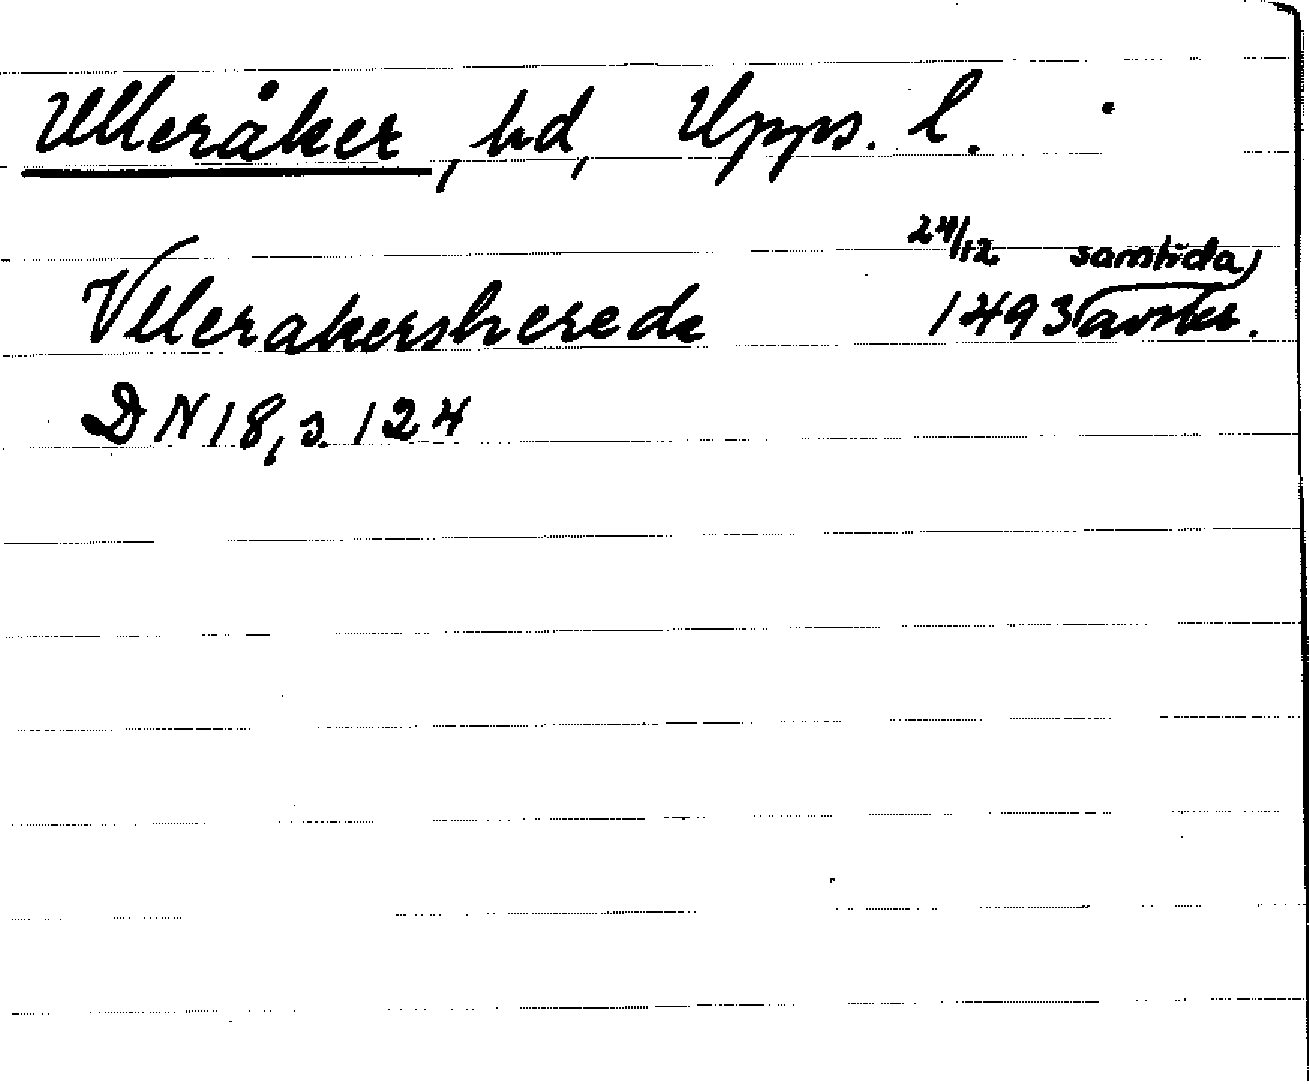 Ulleråker, hd, Upps. l.
Vllerakersherede 24/12 1493 samtida avskr.
DN 18, s. 124